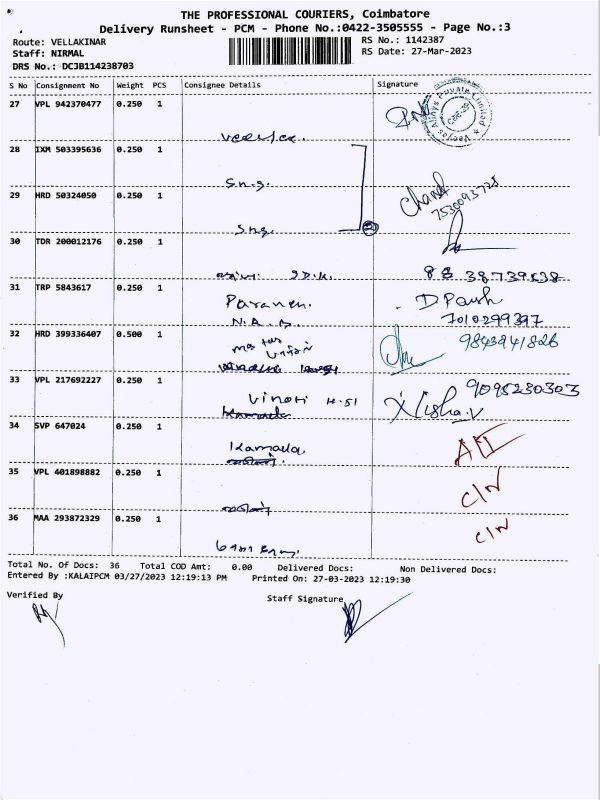 THE PROFESSIONAL COURIERS, Coimbatore
Delivery Runsheet - PCM - Phone No.:0422-3505555 - Page No.:3
Route: VELLAKINAR
RS No.: 1142387
Staff: NIRMAL
RS Date: 27-Mar-2023
DRS No.: DCJB114238703
S No Consignment No Weight PCS Consignee Details Signature
27 VPL 942370477 0.250 1
28 IXM 503395636 0.250 1
S.n.g.
29 HRD 50324050 0.250 1
Chand
7530093728
S.n.g.
30 TDR 200012176 0.250 1
31 TRP 5843617 0.250 1
D Parsh
N.A.
7010299397
32 HRD 399336407 0.500 1
9843941826
33 VPL 217692227 0.250 1
Vinoti H-51
9095230303
34 SVP 647024 0.250 1
Kamala
35 VPL 401898882 0.250 1
C/N
36 MAA 293872329 0.250 1
C/N
Total No. Of Docs: 36 Total COD Amt: 0.00 Delivered Docs: Non Delivered Docs:
Entered By :KALAIPCM 03/27/2023 12:19:13 PM Printed On: 27-03-2023 12:19:30
Verified By
Staff Signature